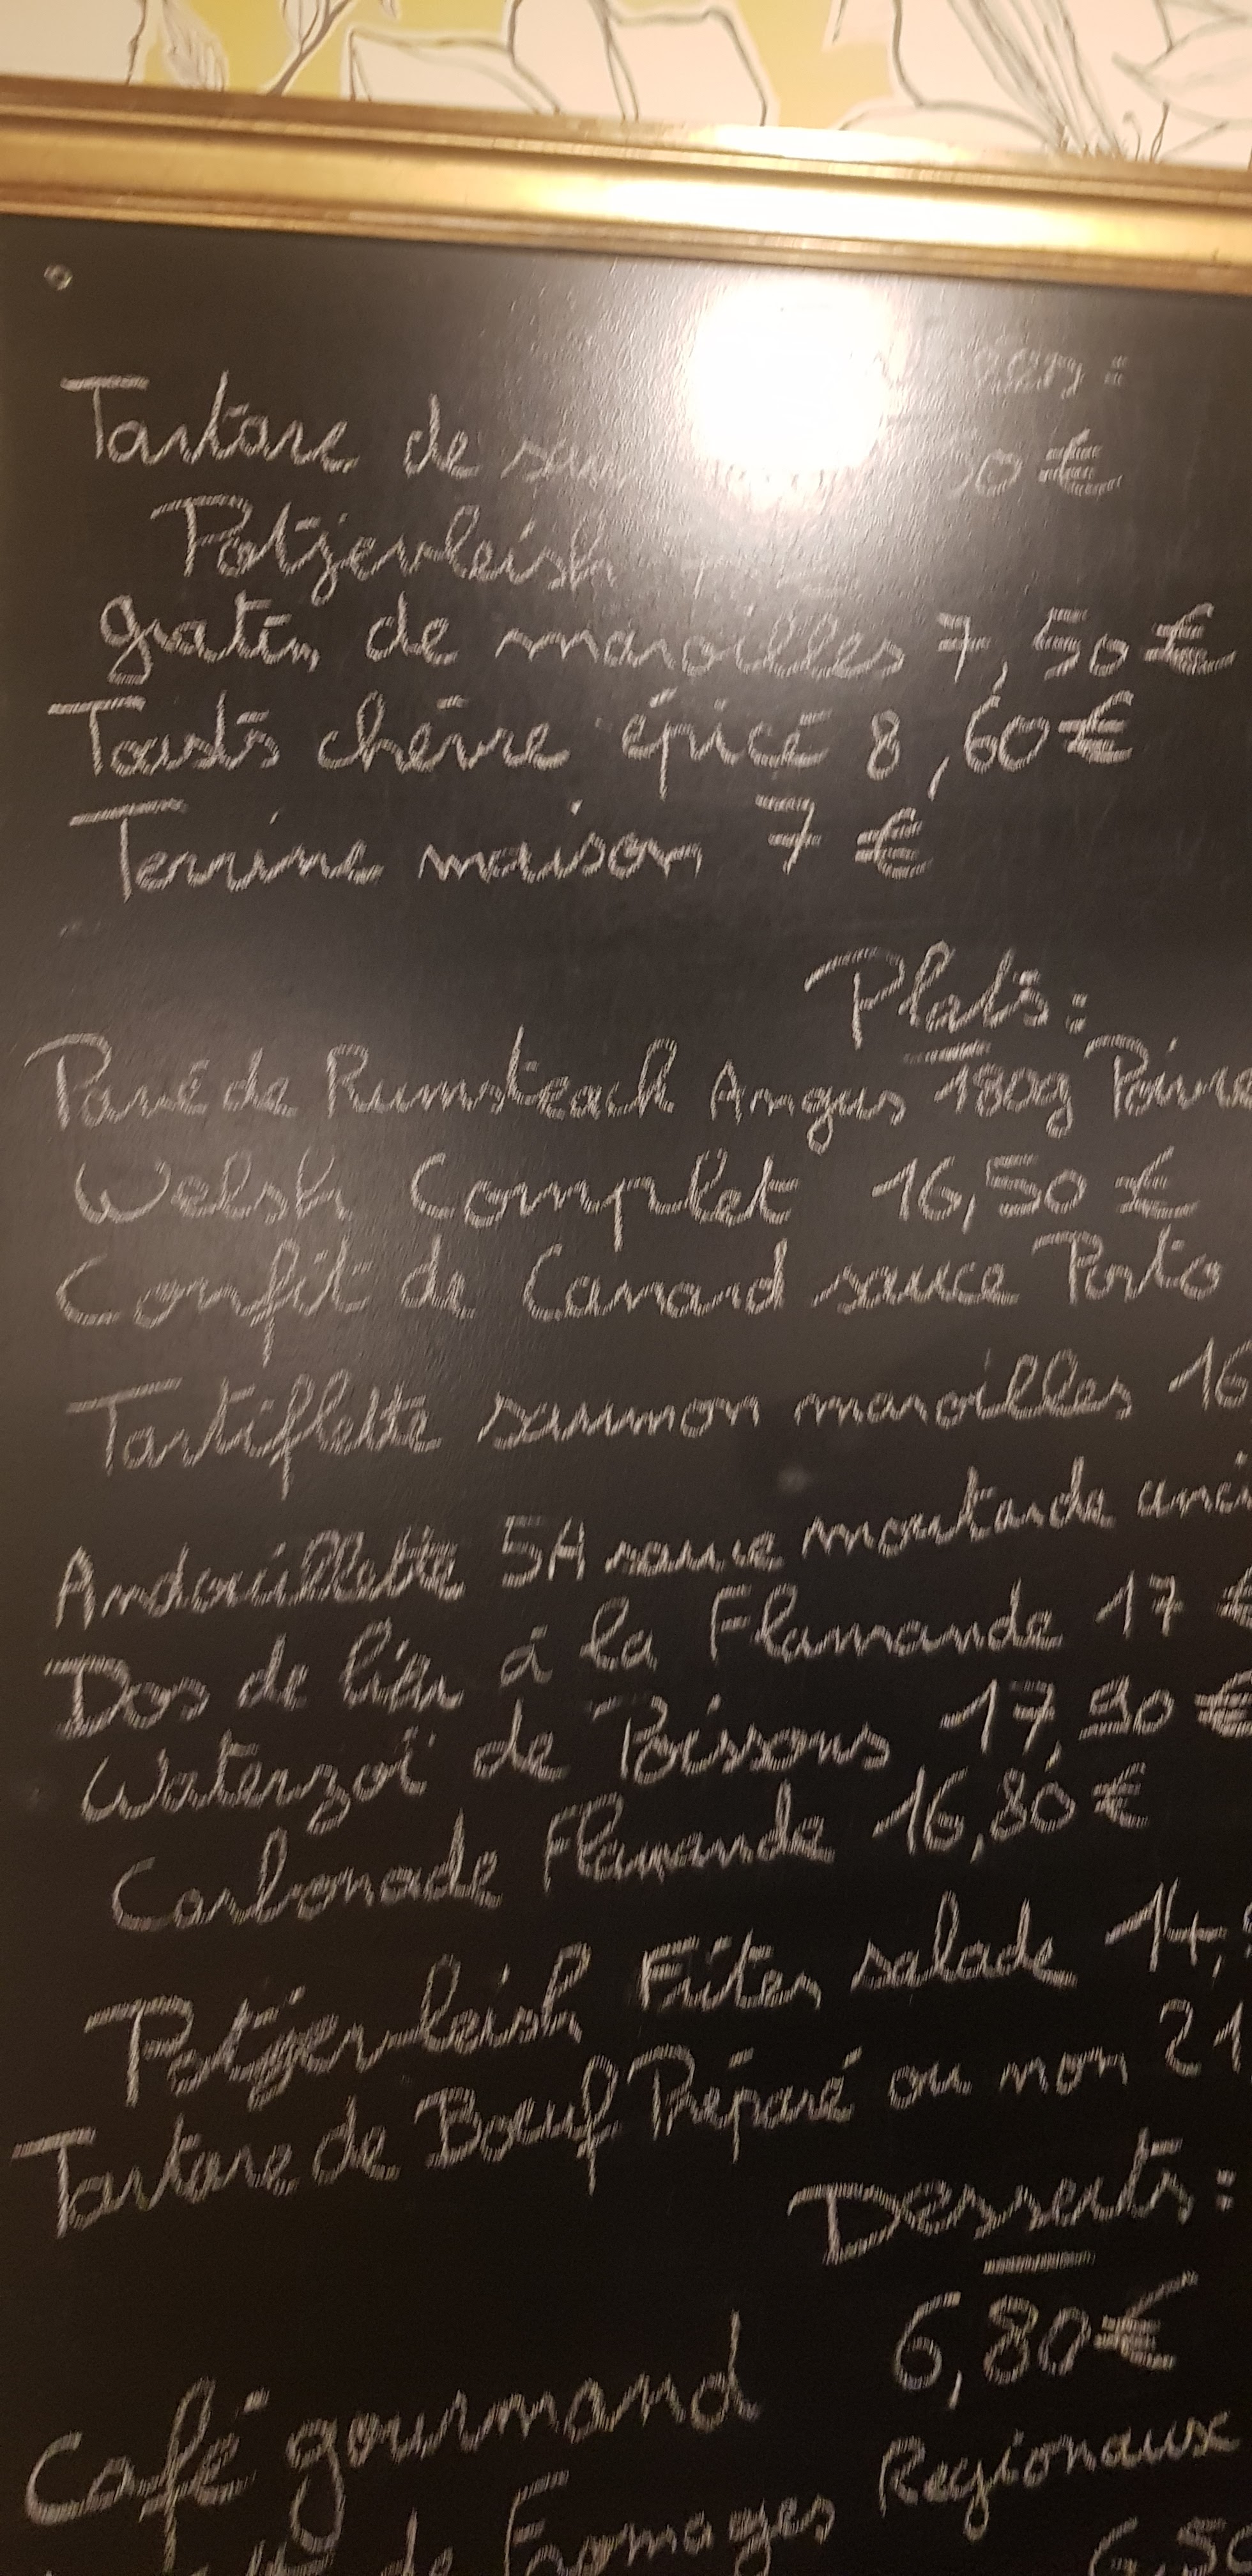 Tartare de 50 €
Potjevleish
gratin de maroilles 7,50 €
Toasts chèvre épicé 8,60 €
Terrine maison 7 €
Plats:
Pavé de Rumsteack Angus 180g Poivre
Welsh Complet 16,50 €
Confit de Canard sauce Porto
Tartiflette saumon maroilles 16
Andouillette 5A sauce moutarde anci
Dos de lieu à la Flamande 17 €
Waterzoï de Poissons 17,90 €
Carbonade Flamande 16,80 €
Potjevleish Frites salade 14,
Tartare de Boeuf Préparé ou non 21,
Desserts:
Café gourmand 6,80 €
de Fromages Regionaux